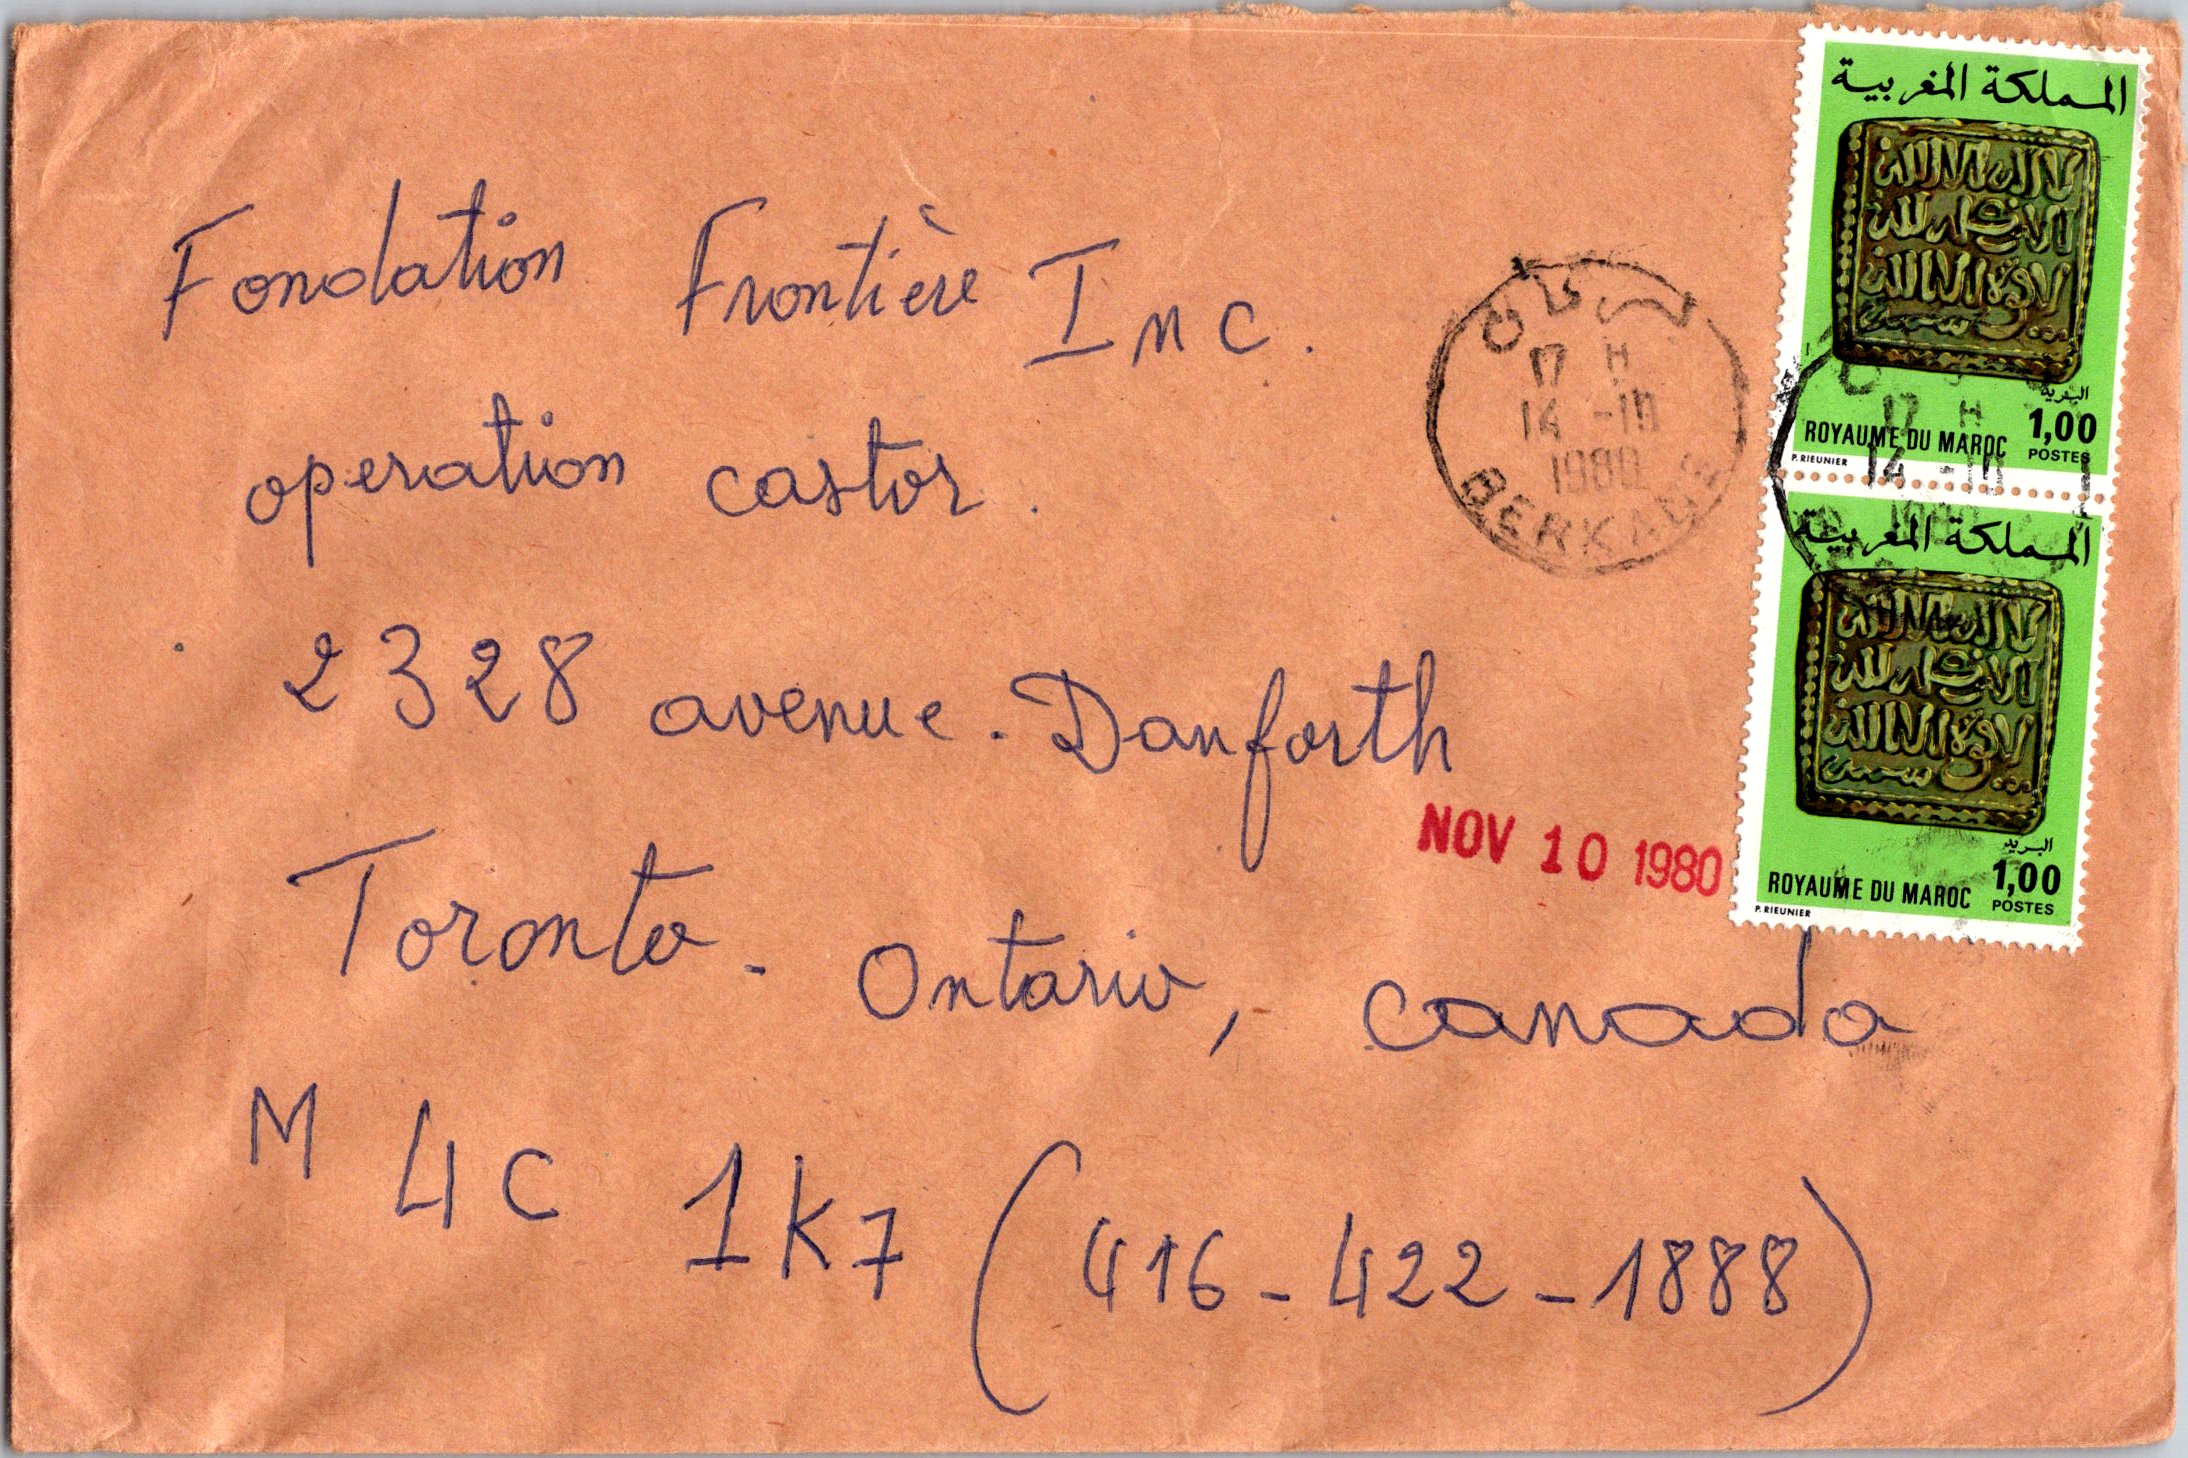 Fondation Frontière Inc.
operation castor.
2328 avenue. Danforth
Toronto. Ontario, canada
M 4C 1K7 (416-422-1888)
بركان
17 H
14 -10
1980
BERKANE
NOV 10 1980
المملكة المغربية
البريد
1,00
ROYAUME DU MAROC
POSTES
P. RIEUNIER
17 H
14 -10
1980
المملكة المغربية
البريد
1,00
ROYAUME DU MAROC
POSTES
P. RIEUNIER